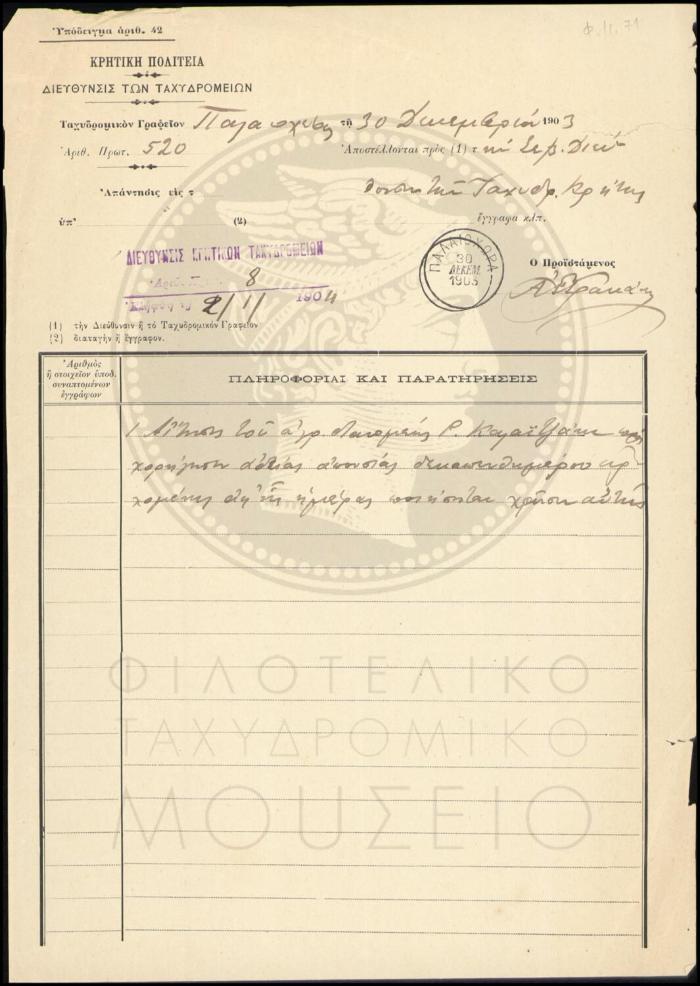 Ὑπόδειγμα ἀριθ. 42
Φ.11.71
ΚΡΗΤΙΚΗ ΠΟΛΙΤΕΙΑ
ΔΙΕΥΘΥΝΣΙΣ ΤΩΝ ΤΑΧΥΔΡΟΜΕΙΩΝ
Ταχυδρομικὸν Γραφεῖον Παλαιοχώρας τῇ 30 Δεκεμβρίου 1903
Ἀριθ. Πρωτ. 520 Ἀποστέλλονται πρὸς (1) τὴν Σεβ. Διεύ
Ἀπάντησις εἰς τ θυνσιν τῶν Ταχυδρ. Κρήτης
ὑπ' (2) ἔγγραφα κλπ.
ΔΙΕΥΘΥΝΣΙΣ ΚΡΗΤΙΚΩΝ ΤΑΧΥΔΡΟΜΕΙΩΝ
8
2/1/1904
ΠΑΛΑΙΟΧΩΡΑ
30
ΔΕΚΕΜ
1903
Ὁ Προϊστάμενος
(1) τὴν Διεύθυνσιν ἢ τὸ Ταχυδρομικὸν Γραφεῖον
(2) διαταγὴν ἢ ἔγγραφον.
Ἀριθμὸς
ἢ στοιχεῖον ὑποβ.
συναπτομένων
ἐγγράφων
ΠΛΗΡΟΦΟΡΙΑΙ ΚΑΙ ΠΑΡΑΤΗΡΗΣΕΙΣ
1 Αἴτησις τοῦ ἀγρ. διανομέως
χορήγησιν ἀδείας ἀπουσίας δεκαπενθημέρου ἀρ
χομένης ἀφ' ἧς ἡμέρας ποιήσεται χρῆσιν αὐτῆς
ΦΙΛΟΤΕΛΙΚΟ
ΤΑΧΥΔΡΟΜΙΚΟ
ΜΟΥΣΕΙΟ